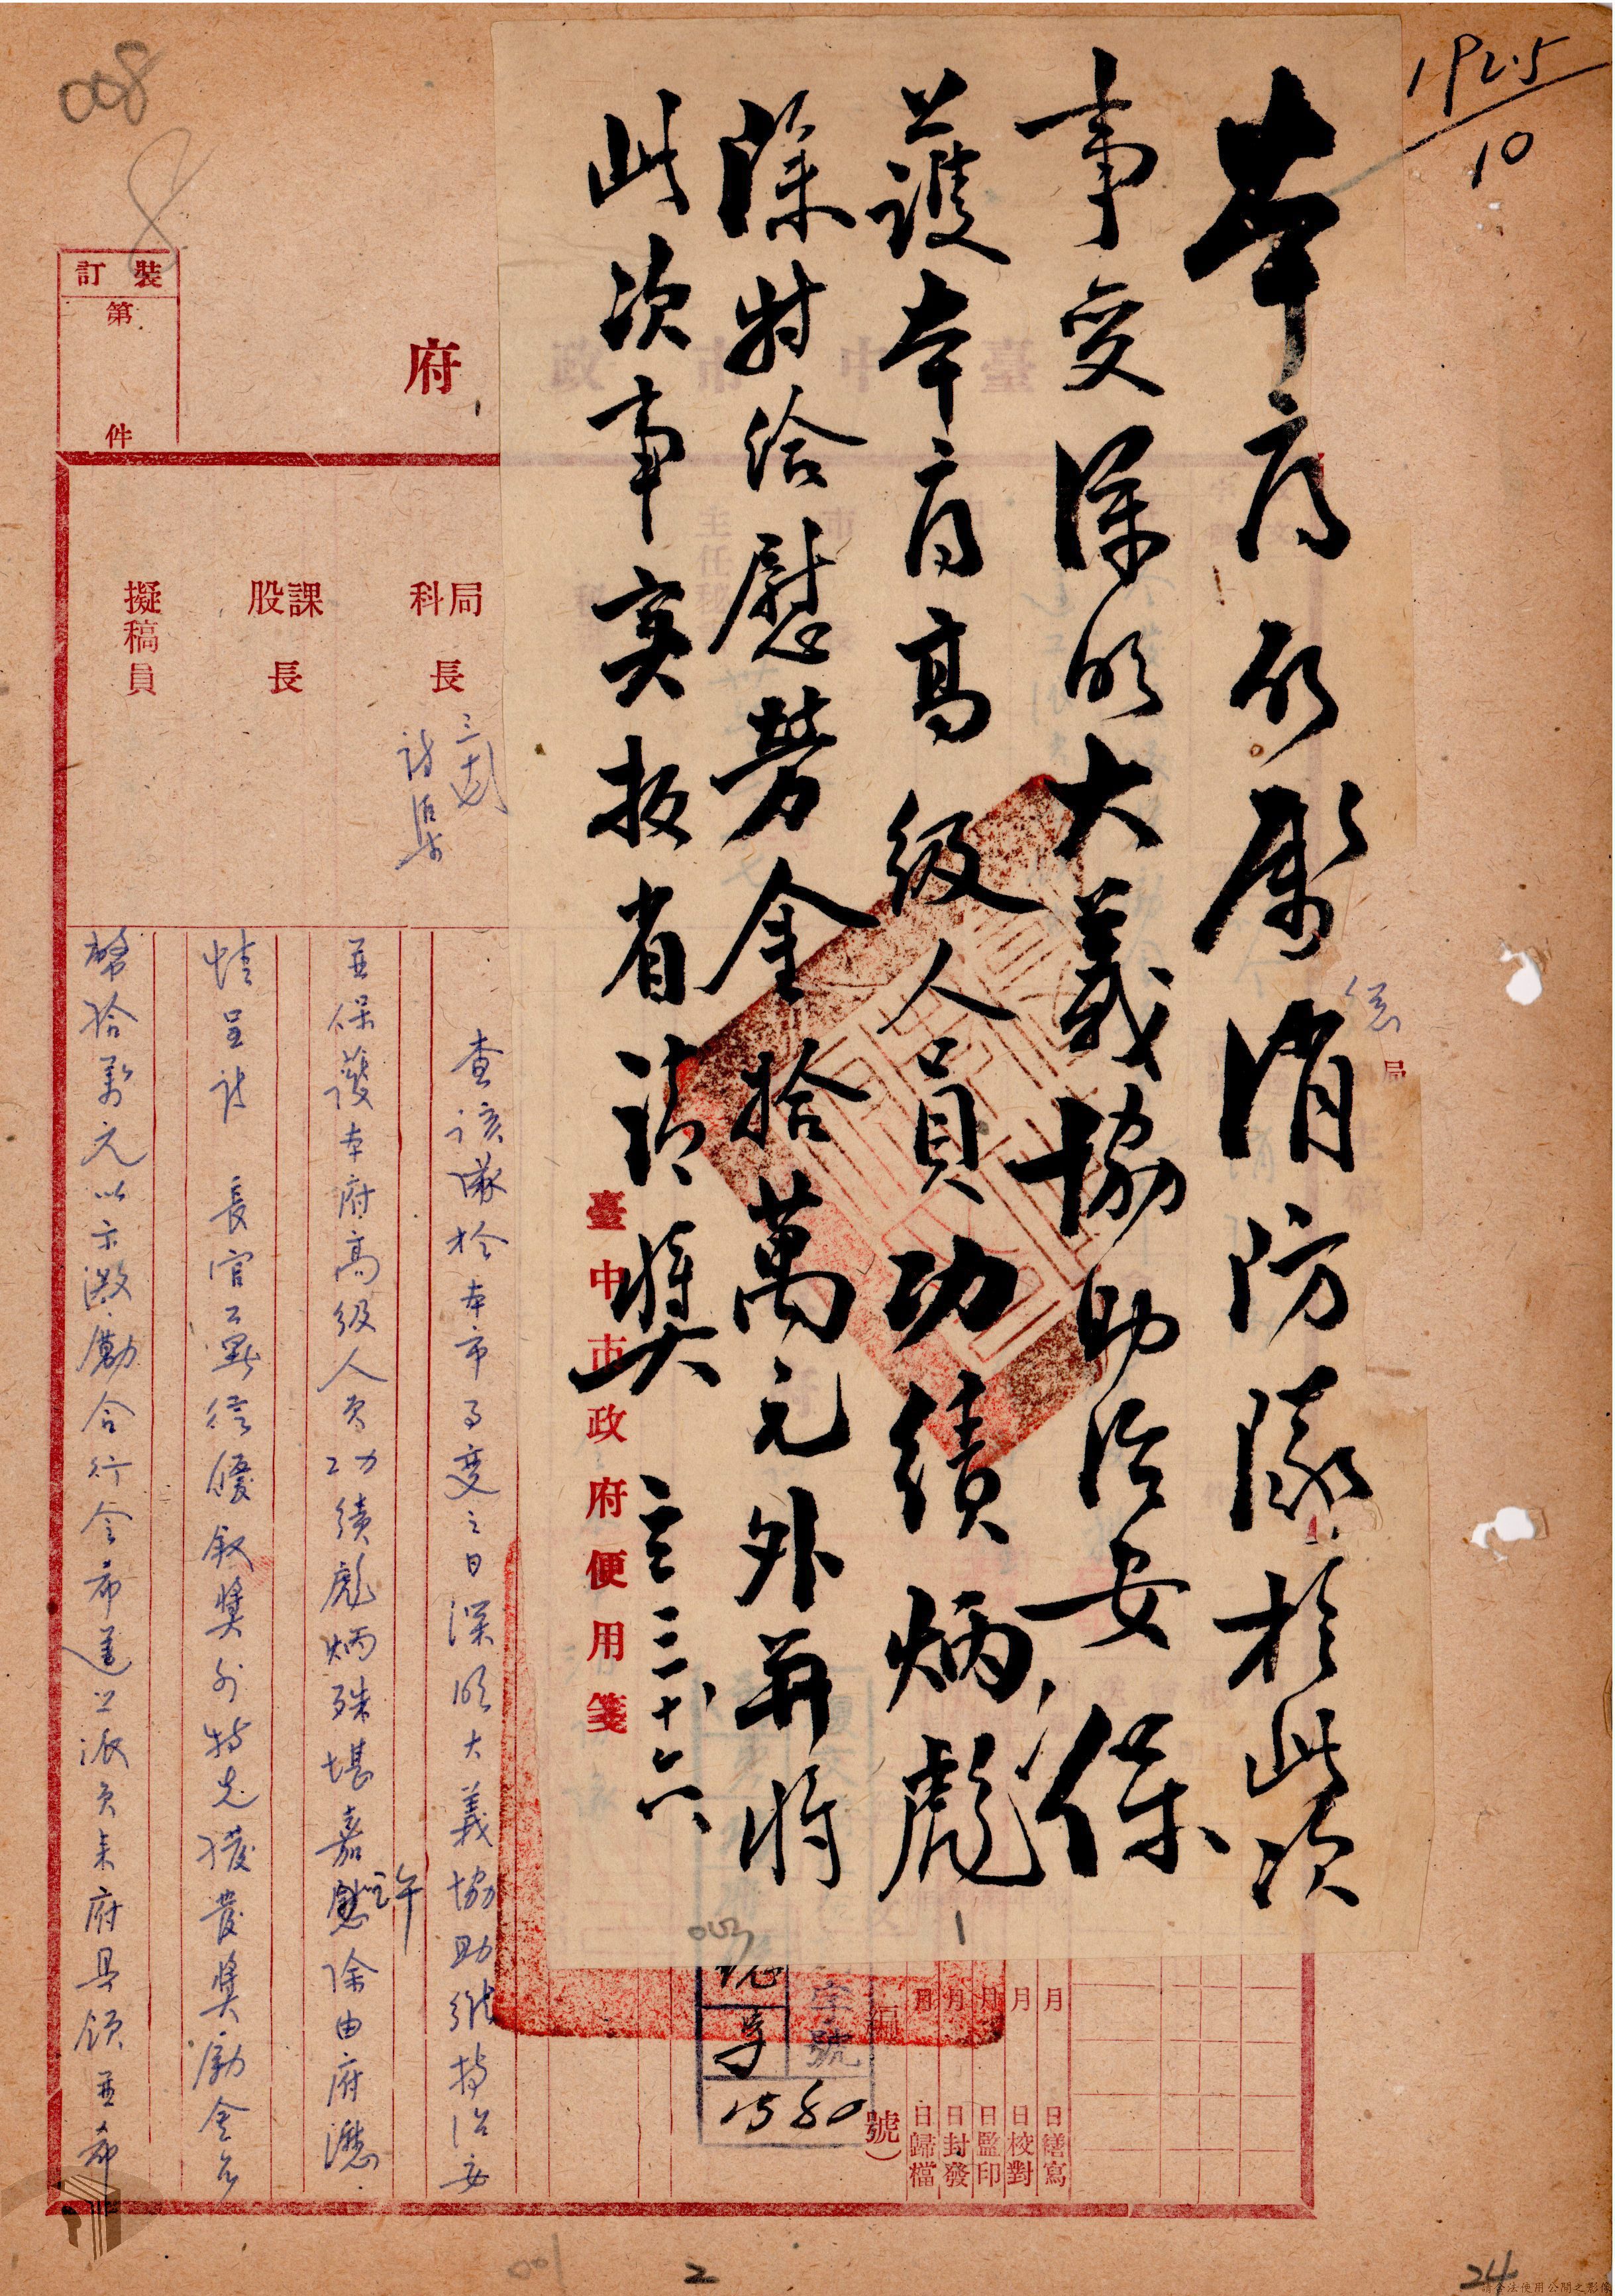 192.5
10
本府所屬消防隊於此次
事变深明大義協助治安保
護本府高級人員功績炳彪
除特給慰勞金拾萬元外并將
此次事实报省請獎
三十六
臺中市政府便用箋
008
8
裝訂
第
件
府
局科長
課股長
擬稿員
查該隊於本市事变之日深明大義協助維持治安
並保護本府高級人員功績彪炳殊堪嘉許除由府瀝
情呈請 長官公署從優叙獎外特先撥發獎勵金台
幣拾萬元以示激勵合行令希遵照派員来府具領並希
局
字號
1580
號)
月 日繕寫
月 日校對
月 日監印
月 日封發
月 日歸檔
001
2
24
請合法使用公開之影像